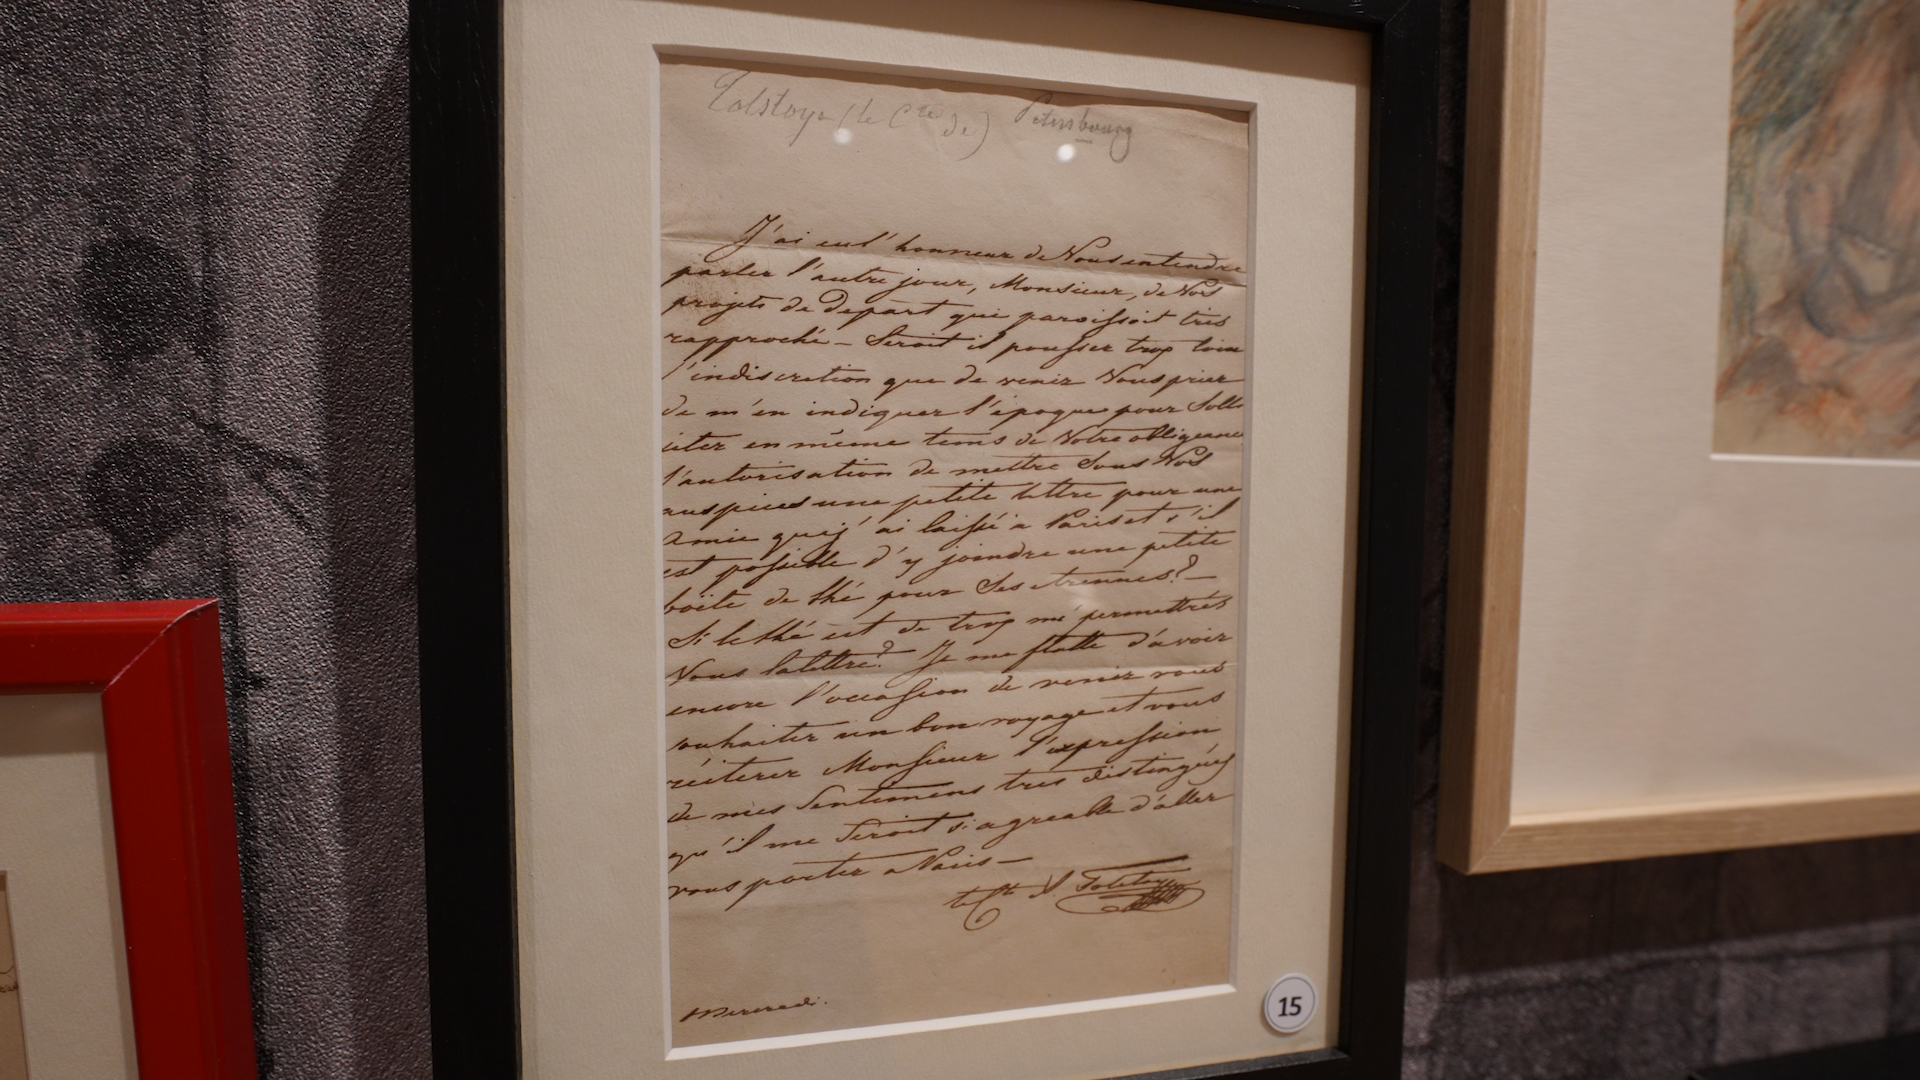 Tolstoye (le Cte de) Petersbourg
J'ai eu l'honneur de Vous entendre
parler l'autre jour, Monsieur, de Vos
projets de depart qui paroissoit très
rapproché – Seroit il pousser trop loin
l'indiscretion que de venir Vous prier
de m'en indiquer l'époque pour Solli
citer en même tems de Votre obligeance
l'autorisation de mettre Sous Vos
auspices une petite lettre pour une
Amie que j'ai laissé a Paris et s'il
est possible d'y joindre une petite
boëte de thé pour Ses etrennes? –
Si le thé est de trop me permettrés
Vous la lettre? Je me flatte d'avoir
encore l'occasion de venir vous
souhaiter un bon voyage et vous
réiterer Monsieur l'expression
de mes Sentimens très distingués
qu'il me Seroit si agreable d'aller
vous porter a Paris –
le Cte Tolstoy
Mercredi.
15